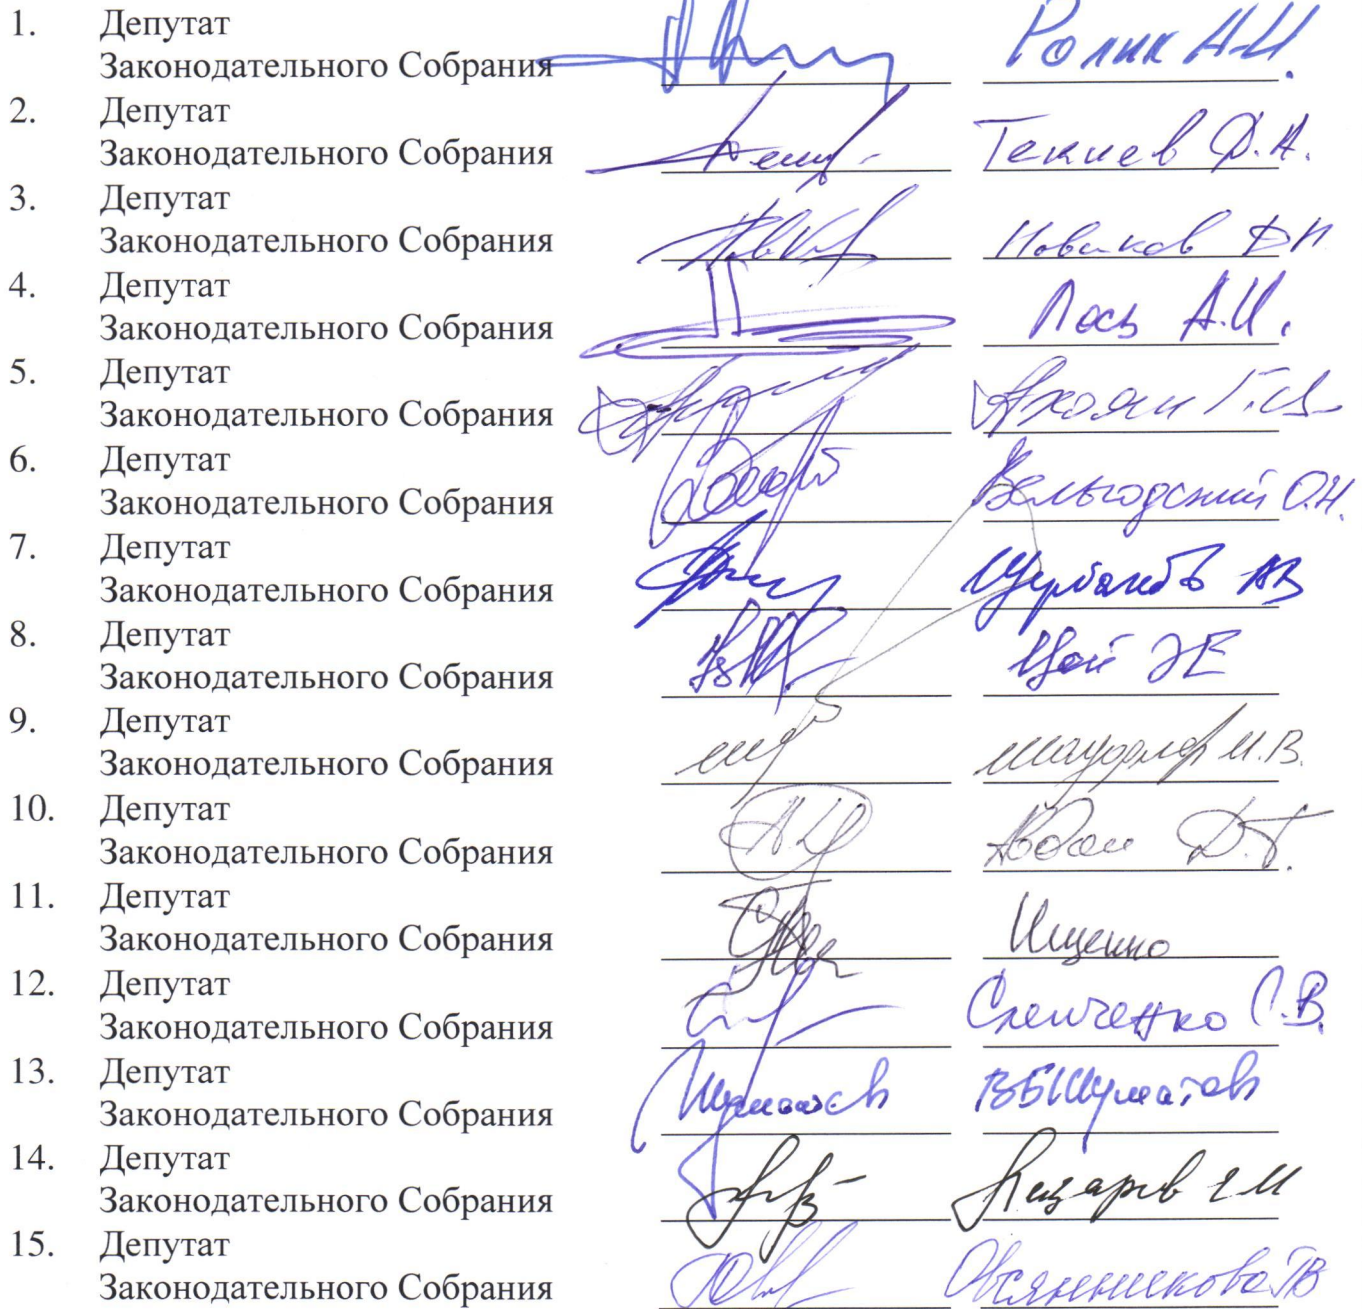 1. Депутат
Законодательного Собрания Ролик А.И.
2. Депутат
Законодательного Собрания Текиев Д.А.
3. Депутат
Законодательного Собрания Новиков ДН
4. Депутат
Законодательного Собрания Лось А.И.
5. Депутат
Законодательного Собрания Ахоян
6. Депутат
Законодательного Собрания О.Н.
7. Депутат
Законодательного Собрания АВ
8. Депутат
Законодательного Собрания Цой ЭЕ
9. Депутат
Законодательного Собрания Шауфлер И.В.
10. Депутат
Законодательного Собрания Д.Г.
11. Депутат
Законодательного Собрания Ищенко
12. Депутат
Законодательного Собрания Слепченко С.В.
13. Депутат
Законодательного Собрания Шуматов ВБШуматов
14. Депутат
Законодательного Собрания
15. Депутат
Законодательного Собрания Овсянникова ТВ